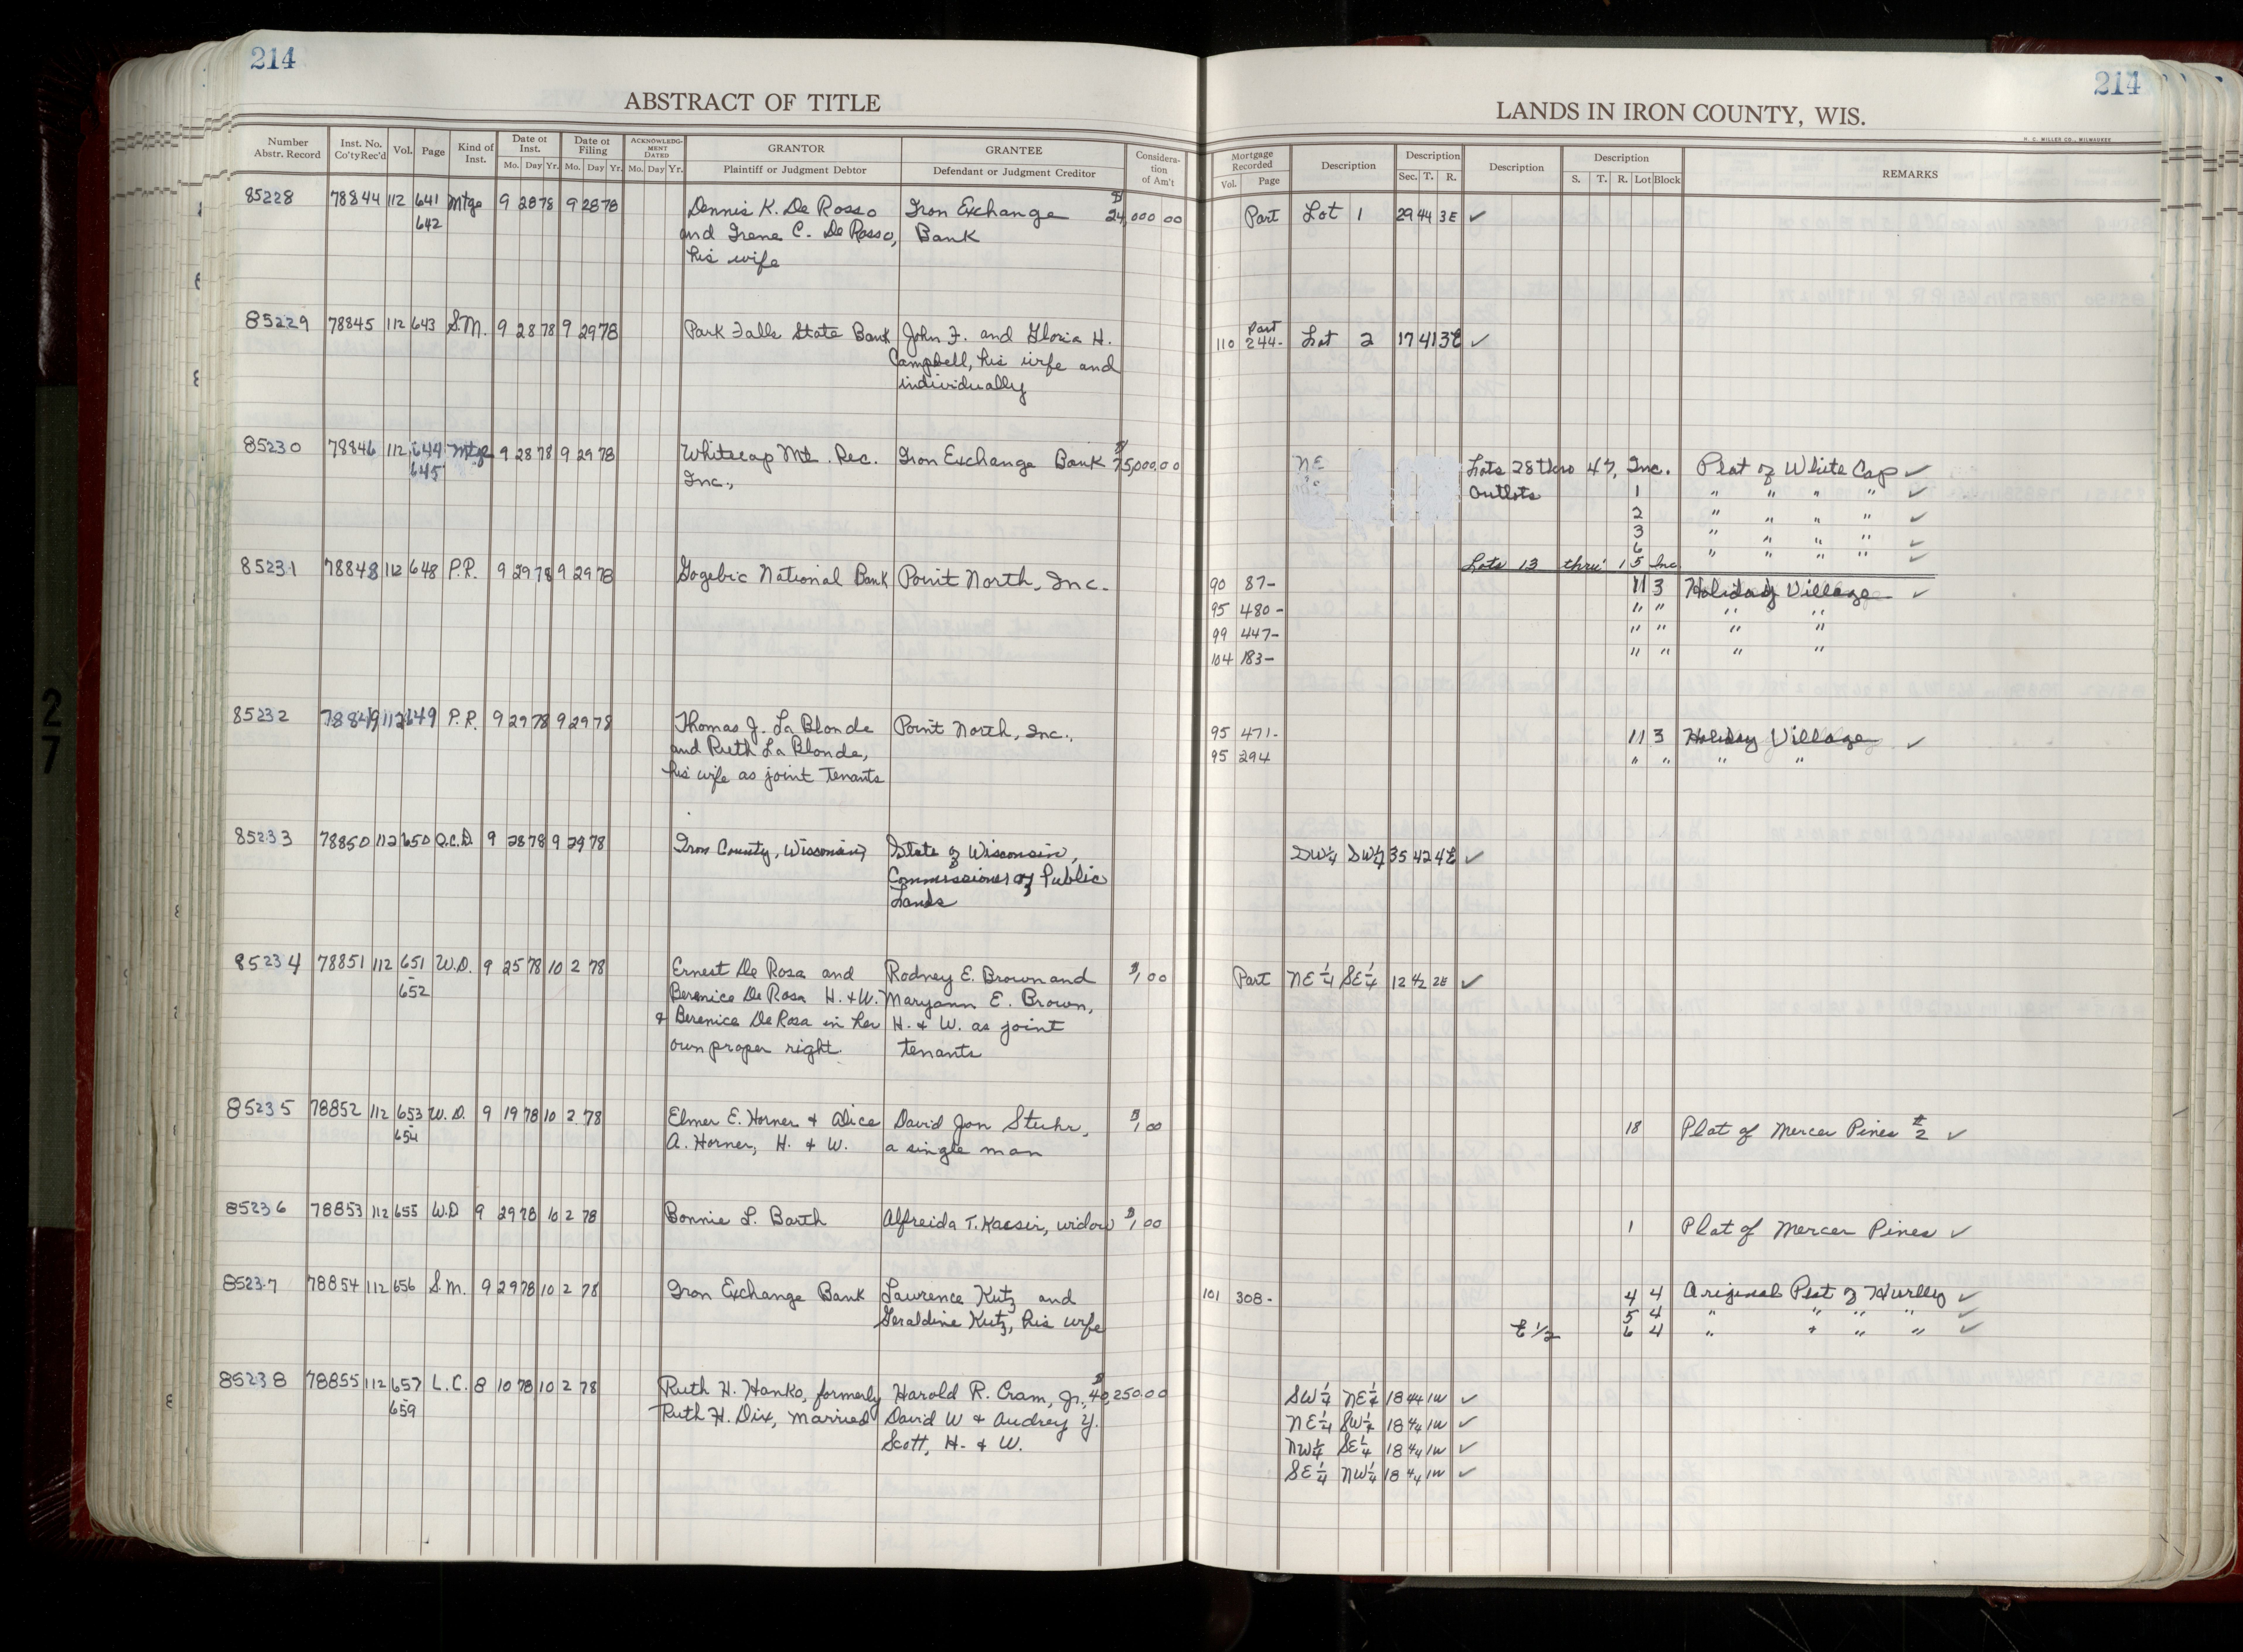 214
ABSTRACT OF TITLE
Number Abstr. Record
Inst. No. Co'tyRec'd
Vol.
Page
Kind of Inst.
Date of Inst. Mo. Day Yr.
Date of Filing Mo. Day Yr.
ACKNOWLEDGMENT DATED Mo. Day Yr.
GRANTOR Plaintiff or Judgment Debtor
GRANTEE Defendant or Judgment Creditor
Consideration of Am't
85228 78844 112 641 Mtge 9 28 78 9 28 78 Dennis K. De Rosso Iron Exchange $24,000 00
642 and Irene C. De Rosso, Bank
his wife
85229 78845 112 643 S.M. 9 28 78 9 29 78 Park Falls State Bank John F. and Gloria H.
Campbell, his wife and
individually
85230 78846 112 644 Mtge 9 28 78 9 29 78 Whitecap Mt. Rec. Iron Exchange Bank $75,000.00
645 Inc.,
85231 78848 112 648 P.R. 9 29 78 9 29 78 Gogebic National Bank Point North, Inc.
85232 78849 112 649 P.R. 9 29 78 9 29 78 Thomas J. La Blonde Point North, Inc.,
and Ruth La Blonde,
his wife as joint tenants
85233 78850 112 650 Q.C.D. 9 28 78 9 29 78 Iron County, Wisconsin, State of Wisconsin,
Commissioner of Public
Lands
85234 78851 112 651 W.D. 9 25 78 10 2 78 Ernest De Rosa and Rodney E. Brown and $1,00
- 652 Berenice De Rosa H. & W. Maryann E. Brown,
& Berenice De Rosa in her H. & W. as joint
own proper right. tenants
85235 78852 112 653 W.D. 9 19 78 10 2 78 Elmer E. Horner & Alice David Jon Stuhr, $1,00
- 654 A. Horner, H. & W. a single man
85236 78853 112 655 W.D 9 29 78 10 2 78 Bonnie L. Barth Alfreida T. Kaesir, widow $1,00
85237 78854 112 656 S.M. 9 29 78 10 2 78 Iron Exchange Bank Lawrence Kutz and
Geraldine Kutz, his wife
85238 78855 112 657 L.C. 8 10 78 10 2 78 Ruth H. Hanko, formerly Harold R. Cram, Jr., $40,250.00
659 Ruth H. Dix, married David W & Audrey Y.
Scott, H. & W.
214
LANDS IN IRON COUNTY, WIS.
H. C. MILLER CO., MILWAUKEE
Mortgage Recorded Vol. Page
Description
Description Sec. T. R.
Description
Description S. T. R. Lot Block
REMARKS
Part Lot 1 29 44 3E ✓
Part
110 244- Lot 2 17 41 3E ✓
NE Lots 28 thro 47, Inc. Plat of White Cap ✓
Outlots 1 " " " " ✓
2 " " " " ✓
3 " " " " ✓
6 " " " " ✓
Lots 13 thru' 15 Inc
90 87- 11 3 Holiday Village ✓
95 480- " " " "
99 447- " " " "
104 183- " " " "
95 471- 11 3 Holiday Village ✓
95 294 " " " "
SW¼ SW¼ 35 42 4E ✓
Part NE¼ SE¼ 12 42 2E ✓
18 Plat of Mercer Pines #2 ✓
1 Plat of Mercer Pines ✓
101 308- 4 4 Original Plat of Hurley ✓
5 4 " " " " ✓
E ½ 6 4 " " " " ✓
SW¼ NE¼ 18 44 1W ✓
NE¼ SW¼ 18 44 1W ✓
NW¼ SE¼ 18 44 1W ✓
SE¼ NW¼ 18 44 1W ✓
27